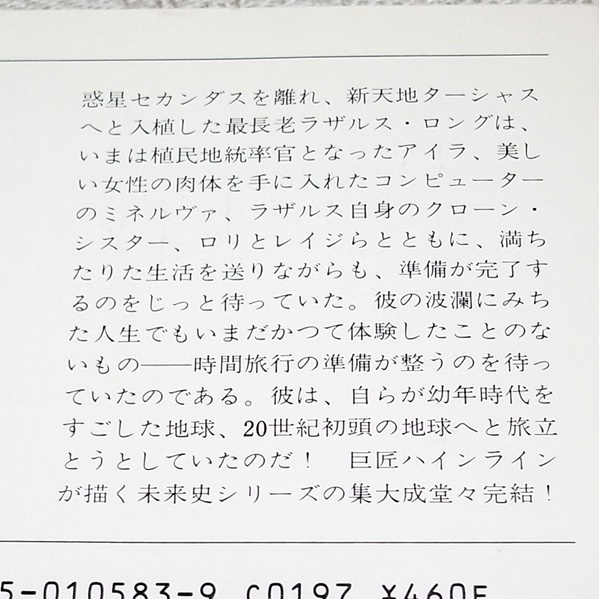 惑星セカンダスを離れ、新天地ターシャス
へと入植した最長老ラザルス・ロングは、
いまは植民地統率官となったアイラ、美し
い女性の肉体を手に入れたコンピューター
のミネルヴァ、ラザルス自身のクローン・
シスター、ロリとレイジらとともに、満ち
たりた生活を送りながらも、準備が完了す
るのをじっと待っていた。彼の波瀾にみち
た人生でもいまだかつて体験したことのな
いもの――時間旅行の準備が整うのを待っ
ていたのである。彼は、自らが幼年時代を
すごした地球、20世紀初頭の地球へと旅立
とうとしていたのだ！　巨匠ハインライン
が描く未来史シリーズの集大成堂々完結！
5-010583-9 C0197 ¥460E